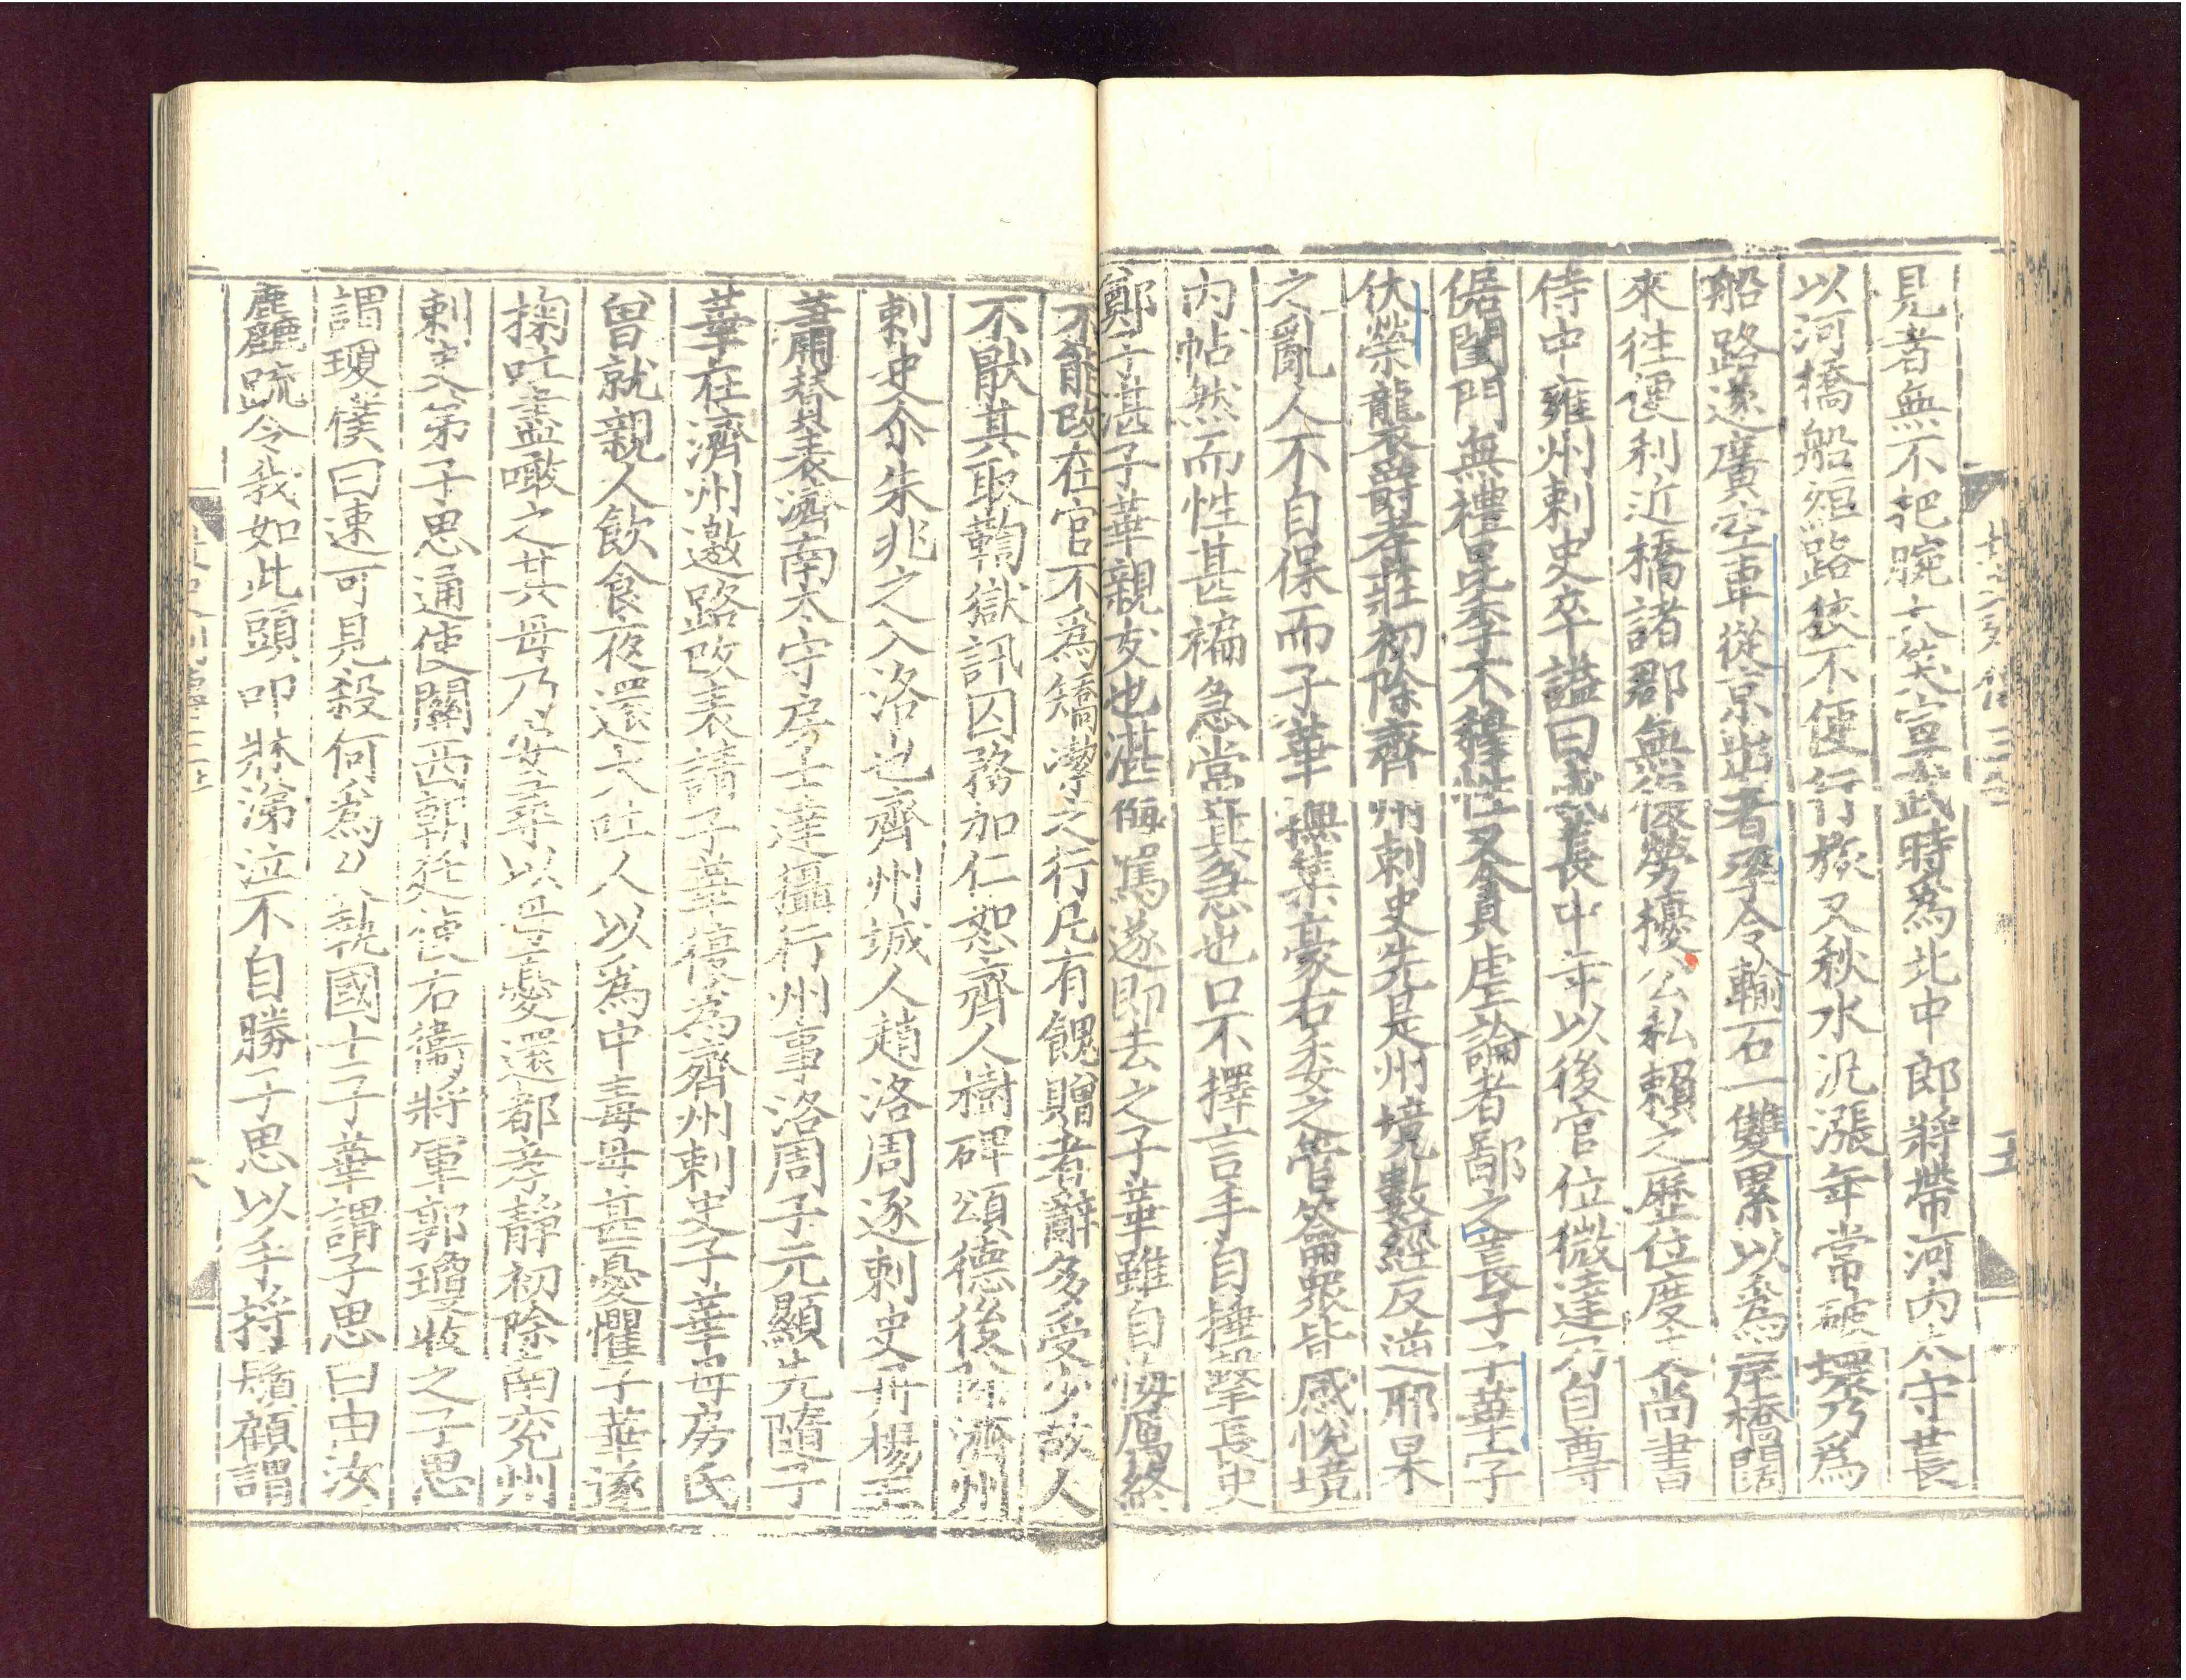 見者無不扼腕大笑宣武時爲北中郎將帶河内太守萇
以河橋船絙路狹不便行旅又秋水汎漲年常破壞乃爲
船路遂廣空車從京出者率令輸石一雙累以爲岸橋闊
來往便利近橋諸郡無復勞擾公私賴之歷位度支尚書
侍中雍州刺史卒謚曰成萇中年以後官位微達乃自尊
倨閨門無禮昆季不穆性又貪虐論者鄙之萇子子華字
伏榮襲爵孝莊初除齊州刺史先是州境數經反逆邢杲
之亂人不自保而子華撫集豪右委之管籥衆皆感悅境
内帖然而性甚褊急當其急也口不擇言手自捶擊長史
鄭子湛子華親友也湛侮罵遂即去之子華雖自悔厲終
不能改在官不爲矯潔之行凡有餽贈者辭多受少故人
不猒其取鞫獄訊囚務加仁恕齊人樹碑頌德後除濟州
刺史尒朱兆之入洛也齊州城人趙洛周逐刺史丹楊王
蕭贊表濟南太守房士達攝行州事洛周子元顯先隨子
華在濟州邀路改表請子華復爲齊州刺史子華母房氏
曾就親人飲食夜還大吐人以爲中毒母甚憂懼子華遂
掬吐盡噉之其母乃安尋以母憂還都孝靜初除南兗州
刺史弟子思通使關西朝廷使右衞將軍郭瓊收之子思
謂瓊僕曰速可見殺何爲久執國士子華謂子思曰由汝
麤疏令我如此頭叩牀涕泣不自勝子思以手捋鬚顧謂
五
六